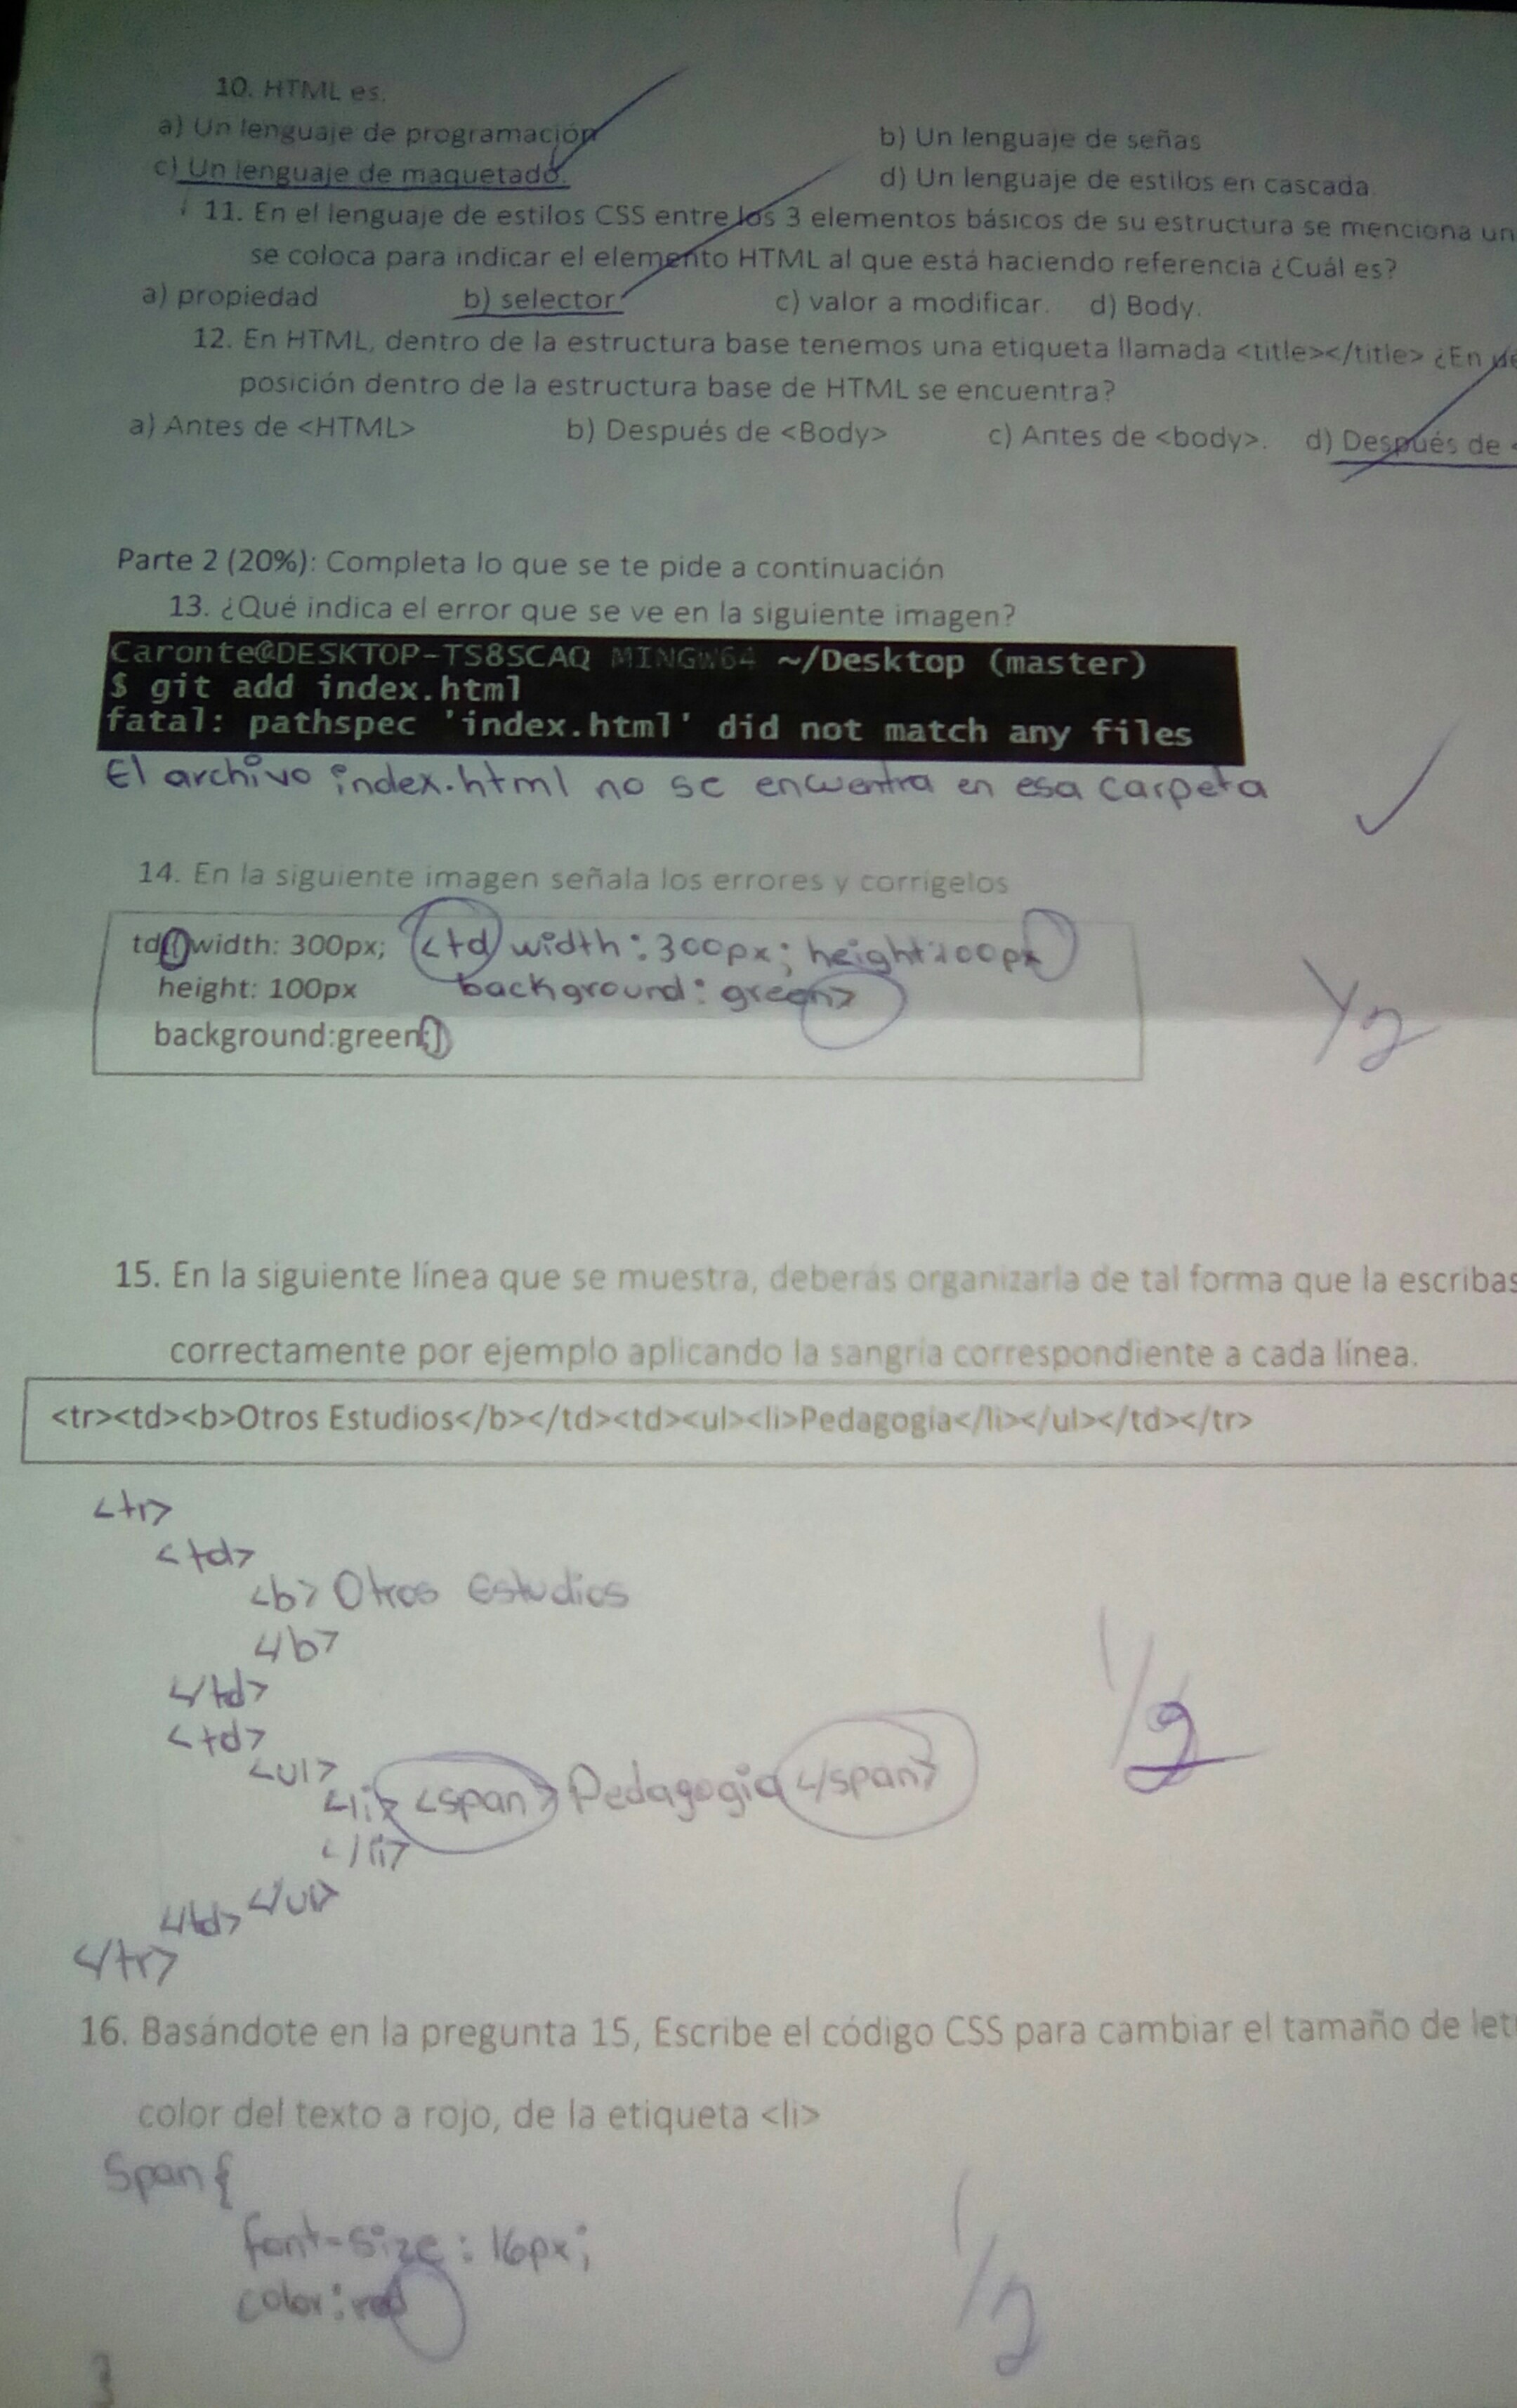 10. HTML es.
a) Un lenguaje de programación
b) Un lenguaje de señas
c) Un lenguaje de maquetado.
d) Un lenguaje de estilos en cascada.
11. En el lenguaje de estilos CSS entre los 3 elementos básicos de su estructura se menciona un
se coloca para indicar el elemento HTML al que está haciendo referencia ¿Cuál es?
a) propiedad b) selector c) valor a modificar. d) Body.
12. En HTML, dentro de la estructura base tenemos una etiqueta llamada <title></title> ¿En
posición dentro de la estructura base de HTML se encuentra?
a) Antes de <HTML> b) Después de <Body> c) Antes de <body>. d) Después de <
Parte 2 (20%): Completa lo que se te pide a continuación
13. ¿Qué indica el error que se ve en la siguiente imagen?
Caronte@DESKTOP-TS8SCAQ MINGW64 ~/Desktop (master)
$ git add index.html
fatal: pathspec 'index.html' did not match any files
El archivo index.html no se encuentra en esa carpeta
14. En la siguiente imagen señala los errores y corrígelos
td width: 300px; <td width: 300px; height:100px
height: 100px background: green>
background:green
1/2
15. En la siguiente línea que se muestra, deberás organizarla de tal forma que la escribas
correctamente por ejemplo aplicando la sangría correspondiente a cada línea.
<tr><td><b>Otros Estudios</b></td><td><ul><li>Pedagogía</li></ul></td></tr>
<tr>
<td>
<b> Otros Estudios
</b>
</td>
<td>
<ul>
<li> <span> Pedagogia </span>
</li>
</ul>
</td>
</tr>
1/2
16. Basándote en la pregunta 15, Escribe el código CSS para cambiar el tamaño de let
color del texto a rojo, de la etiqueta <li>
Span {
font-size: 16px;
color: red
1/2